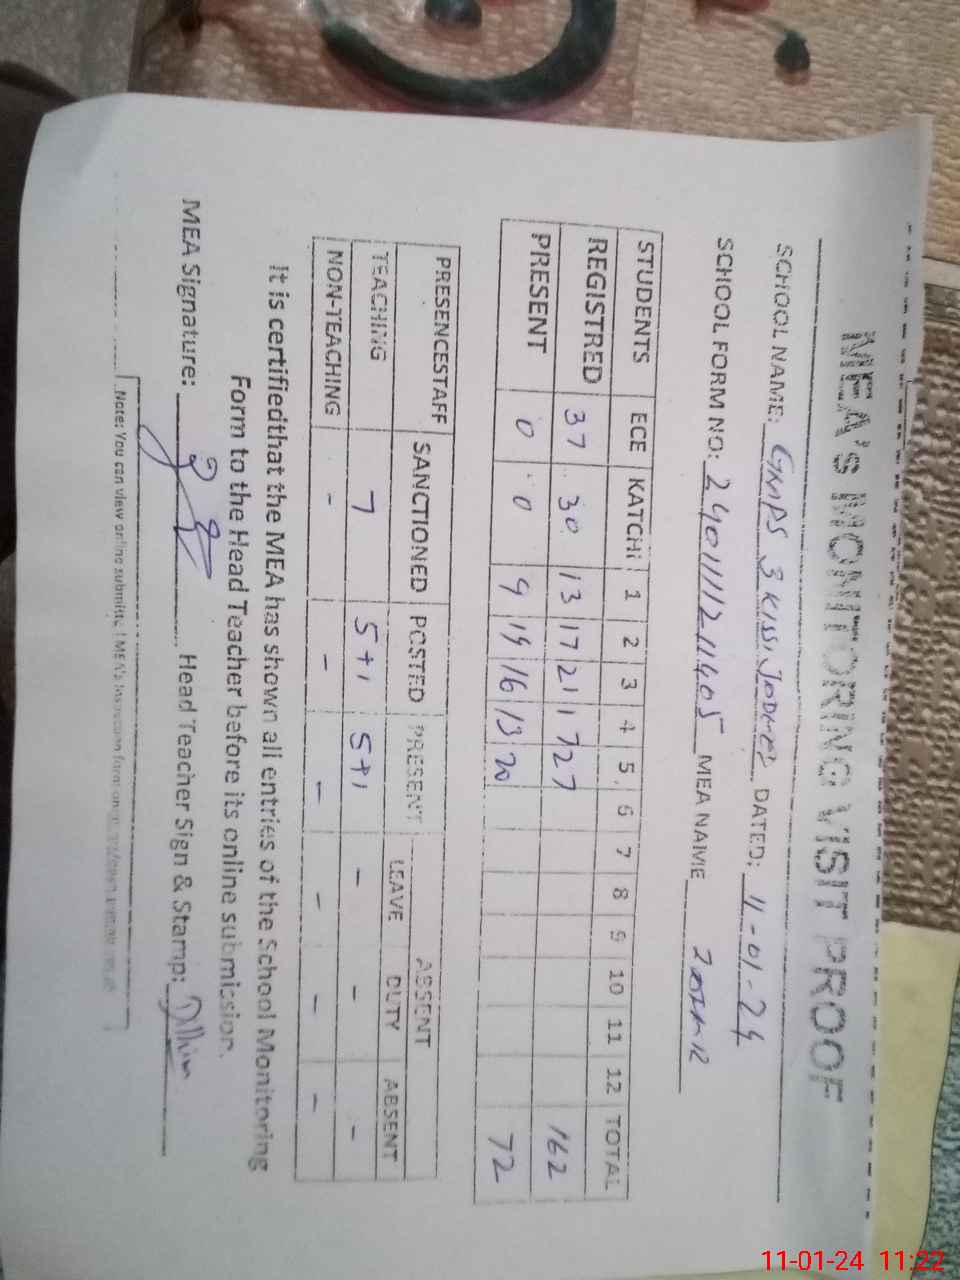 MEA'S MONITORING VISIT PROOF
SCHOOL NAME: GMPS 3 KISSI JODHEP DATED: 11-01-24
SCHOOL FORM NO: 24011112111405 MEA NAME
STUDENTS ECE KATCHI 1 2 3 4 5 6 7 8 9 10 11 12 TOTAL
REGISTRED 37 30 13 17 21 17 27 162
PRESENT 0 0 9 14 16 13 20 72
PRESENCESTAFF SANCTIONED POSTED PRESENT ABSENT
LEAVE DUTY ABSENT
TEACHING 7 5+1 5+1 - - -
NON-TEACHING - - - - - -
It is certifiedthat the MEA has shown all entries of the School Monitoring
Form to the Head Teacher before its online submission.
MEA Signature: Head Teacher Sign & Stamp:
Note: You can view online submitted MEA's Inspection form on
11-01-24 11:22